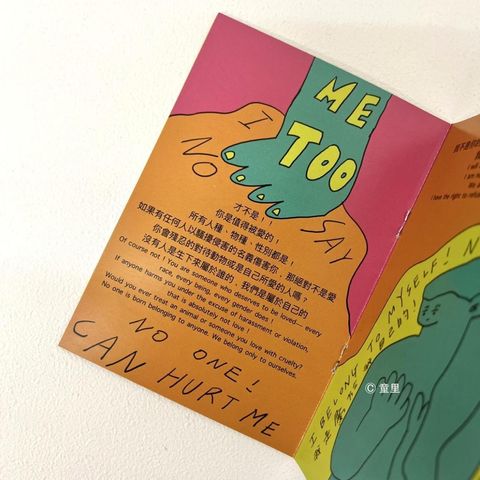 ME
TOO
I
NO
SAY
才不是！！
你是值得被愛的！
所有人種，物種，性別都是！
如果有任何人以騷擾侵害的名義傷害你，那絕對不是愛
你會殘忍的對待動物或是自己所愛的人嗎？
沒有人是生下來屬於誰的，我們是屬於自己的
Of course not! You are someone who deserves to be loved— every
race, every being, every gender does!
If anyone harms you under the excuse of harassment or violation,
that is absolutely not love!
Would you ever treat an animal or someone you love with cruelty?
No one is born belonging to anyone. We belong only to ourselves.
NO ONE!
CAN HURT ME
I will
I am no
We a
I have the right to refus
I BELONG TO MYSELF! N
我是屬於我自己的！
© 童里